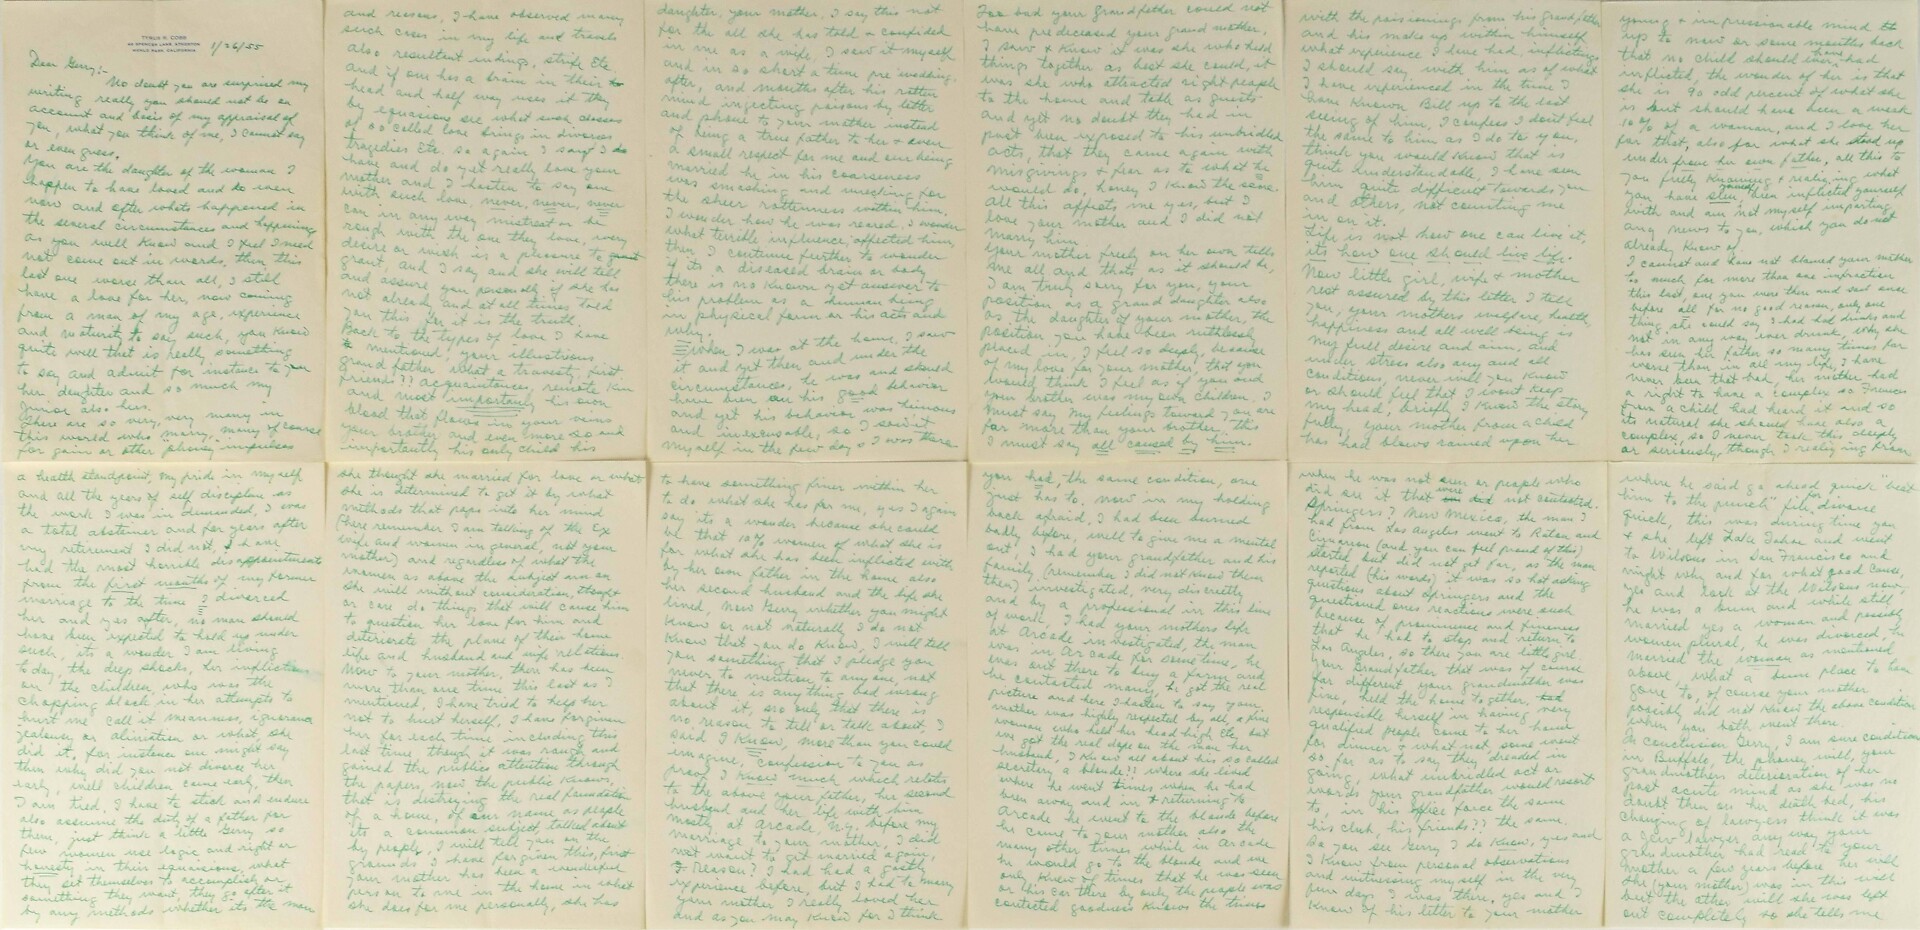 TYRUS R. COBB
48 SPENCER LANE, ATHERTON
MENLO PARK, CALIFORNIA
1/26/55
Dear Gerry:-
No doubt you are surprised my
writing really you should not be on
account and basis of my appraisal of
you, what you think of me, I cannot say
or even guess.
You are the daughter of the woman I
happen to have loved and do even
now and after whats happened in
the several circumstances and happenings
as you well know and I feel I need
not come out in words, then this
last one worse than all, I still
have a love for her, now coming
from a man of my age, experience
and maturity to say such, you know
quite well that is really something
to say and admit for instance to you
her daughter and so much my
junior also hers.
There are so very, very many in
this world who marry, many of course
for gain or other phoney impulses
and reasons, I have observed many
such cases in my life and travels
also resultant endings, strife Etc
and if one has a brain in their
head and half way uses it they
by equasions see what such classes
of so called love brings in divorces
tragedies Etc, so again I say I do
have and do yet really love your
mother and I hasten to say one
with such love, never, never, never
can in any way mistreat or be
rough with the one they love, every
desire or wish is a pleasure to
grant, and I say and she will tell
and assure you personally if she has
not already and at all times told
you this for it is the truth.
Back to the types of love I have
mentioned, your illustrious
grand father what a travesty, first
friends?? acquaintances, remote kin
and most importantly his own
blood that flows in your veins
your brother and even more so and
importantly his only child his
daughter, your mother, I say this not
for the all she has told & confided
in me as a wife, I saw it myself
and in so short a time pre wedding.
after, and months after his rotten
mind injecting poisons by letter
and phone to your mother instead
of being a true father to her & even
a small respect for me and our being
married he in his coarseness
was smashing and wrecking for
the sheer rottenness within him.
I wonder how he was reared. I wonder
what terrible influence affected him
then I continue further to wonder
if its a diseased brain or body
there is no known yet answer to
his problem as a human being
in physical form or his acts and
why.
When I was at the house, I saw
it and yet then and under the
circumstances, he was and should
have been on his good behavior
and yet his behavior was heinous
and inexcusable, so I saw it
myself in the few days I was there
Too bad your grandfather could not
have predeceased your grand mother,
I saw & know it was she who held
things together as best she could, it
was she who attracted right people
to the home and table as guests
and yet no doubt they had in
past been exposed to his unbridled
acts, that they came again with
misgivings & fear as to what he
would do, honey I know the score
all this affects me yes, but I
love your mother and I did not
marry him.
Your mother freely on her own tells
me all and thats as it should be,
I am truly sorry for you, your
position as a grand daughter also
as the daughter of your mother, the
position you have been ruthlessly
placed in, I feel so deeply, because
of my love for your mother, that you
would think I feel as if you and
your brother was my own children. I
must say my feelings toward you are
far more than your brother, this
I must say all caused by him.
with the poisonings from his grandfather
and his make up within himself,
what experience I have had, inflictings
I should say, with him as of what
I have experienced in the time I
have known Bill up to the last
seeing of him, I confess I dont feel
the same to him as I do to you,
think you would know that is
quite understandable, I have seen
him quite difficult towards you
and others, not counting me
in on it.
Life is not how one can live it,
its how one should live life.
Now little girl, wife & mother
rest assured by this letter I tell
you, your mothers welfare, health,
happiness and all well being is
my full desire and aim, and
under stress also any and all
conditions, never will you know
or should feel that I wont keep
my head, briefly I know the story
fully, your mother from a child
has had blows rained upon her
young & impressionable mind
up to now or some months back
that no child should ever have had
inflicted, the wonder of her is that
she is 90 odd percent of what she
is but should have been a weak
10% of a woman, and I love her
for that, also for what she stood up
under from her own father, all this to
you fully knowing & realizing what
you have been inflicted yourself
with and am not myself imparting
any news to you, which you do not
already know of.
I cannot and have not blamed your mother
to much for more than one infraction
this last, one you were there and said once
before all for no good reason, only one
thing she could say I had had drinks and
not in any way ever drunk, why she
has seen her father so many times far
worse than in all my life, I have
never been that bad, her mother had
a right to have a complex so Frances
from a child had heard it and so
its natural she should have also a
complex, so I never took this deeply
or seriously, though I realizing from
a health standpoint, my pride in myself
and all the years of self discipline as
the work I was in demanded, I was
a total abstainer and for years after
my retirement I did not, I have
had the most horrible disappointments
from the first months of my former
marriage to the time I divorced
her and yes after, no man should
have been expected to hold up under
such, its a wonder I am living
to day, the deep shocks, her infliction
on the children, who was the
chopping block in her attempts to
hurt me call it meanness, ignorance
jealousy or alination or what, she
did it, for instance one might say
then why did you not divorce her
early, well children came early, then
I am tied, I have to stick and endure
also assume the duty of a father for
them, just think a little Gerry so
few women use logic and right or
honesty in their equasions, what
they set themselves to accomplish or
something they want, they go after it
by any methods whether its the man
she thought she married for love or what
she is determined to get it by what
methods that pops into her mind
(here remember I am talking of the Ex
wife and women in general, not your
mother) and regardless of what the
women as above the subject are on
she will without consideration, thought
or care do things that will cause him
to question her love for him and
deteriorate the plane of their home
life and husband and wife relations.
Now to your mother, there has been
more than one time this last as I
mentioned, I have tried to help her
not to hurt herself, I have forgiven
her for each time, including this
last time though it was rough and
gained the publics attention through
the papers, now the public knows,
that is destroying the real foundation
of a home, of our name as people
its a common subject, talked about
by people, I will tell you on the
grounds I have forgiven this, first
your mother has been a wonderful
person to me in the home in what
she does for me personally, she has
to have something finer within her
to do what she has for me, yes I again
say its a wonder because she could
be that 10% women of what she is
for what she has been inflicted with
by her own father in the home also
her second husband and the life she
lived, now Gerry whether you might
know or not naturally I do not
know that you do know, I will tell
you something that I pledge you
never to mention to any one, not
that there is anything bad wrong
about it, so only that there is
no reason to tell or talk about, I
said I know, more than you could
imagine, confession to you as
proof I know much which relates
to the above your father, her second
husband and her life with him
mostly at Arcade, N.Y. before my
marriage to your mother, I did
not want to get married again,
Reason? I had had a ghastly
experience before, but I had to marry
your mother I really loved her
and as you may know for I think
you had, the same condition, one
just has to. now in my holding
back afraid, I had been burned
badly before, well to give me a mental
out, I had your grandfather and his
family, (remember I did not know them
then) investigated, very discreetly
and by a professional in this line
of work, I had your mothers life
at Arcade investigated, the man
was in Arcade for some time, he
was out there to buy a farm and
he contacted many, to get the real
picture and here I hasten to say your
mother was highly respected by all, a fine
woman who held her head high Etc, but
we got the real dope on the man her
husband, I know all about his so called
secretary a blonde!! where she lived
where he went times when he had
been away and in & returning to
Arcade he went to the blonde before
he came to your mother also the
many other times while in Arcade
he would go to the blonde and we
only knew of times that he was seen
or his car there by only the people was
contacted goodness knows the times
when he was not seen or people who
did see it that were not contacted.
Springers? New Mexico, the man I
had from Los Angeles went to Raton and
Cimarron (and you can feel proud of this)
started but did not get far, as the man
reported (his words) it was so hot asking
questions about Springers and the
questioned ones reactions were such
because of prominence and fineness
that he had to stop and return to
Los Angeles, so there you are little girl
your Grandfather this was of course
far different, your grandmother was
fine, held the home together, very
responsible herself in having
qualified people come to her home
for dinner & what not, some went
so far as to say they dreaded in
going, what unbridled act or
words your grandfather would resort
to, in his office force the same
his club, his friends?? the same.
So you see Gerry I do know, yes and
I know from personal observations
and witnessing myself in the very
few days I was there, yes and I
know of his letter to your mother
where he said go ahead quick "beat
him to the punch" file for divorce
quick, this was during time you
& she left Lake Tahoe and went
to Wilsons in San Francisco and
right why and for what good cause,
yes and look at the Wilsons now,
he was a bum and while still
married yes a woman and possibly
women plural, he was divorced, he
married the woman as mentioned
above, what a bum place to have
gone to, of course your mother
possibly did not know the above condition
when you both went there.
In conclusion Gerry, I am sure conditions
in Buffalo, the phoney will, your
grandmothers deterioration of her
past acute mind as she was no
doubt then on her death bed, his
changing of lawyers think it was
a Jew lawyer, any way your
grandmother had read to your
mother a few years before her will
She (your mother) was in this will
but the other will she was left
out completely so she tells me